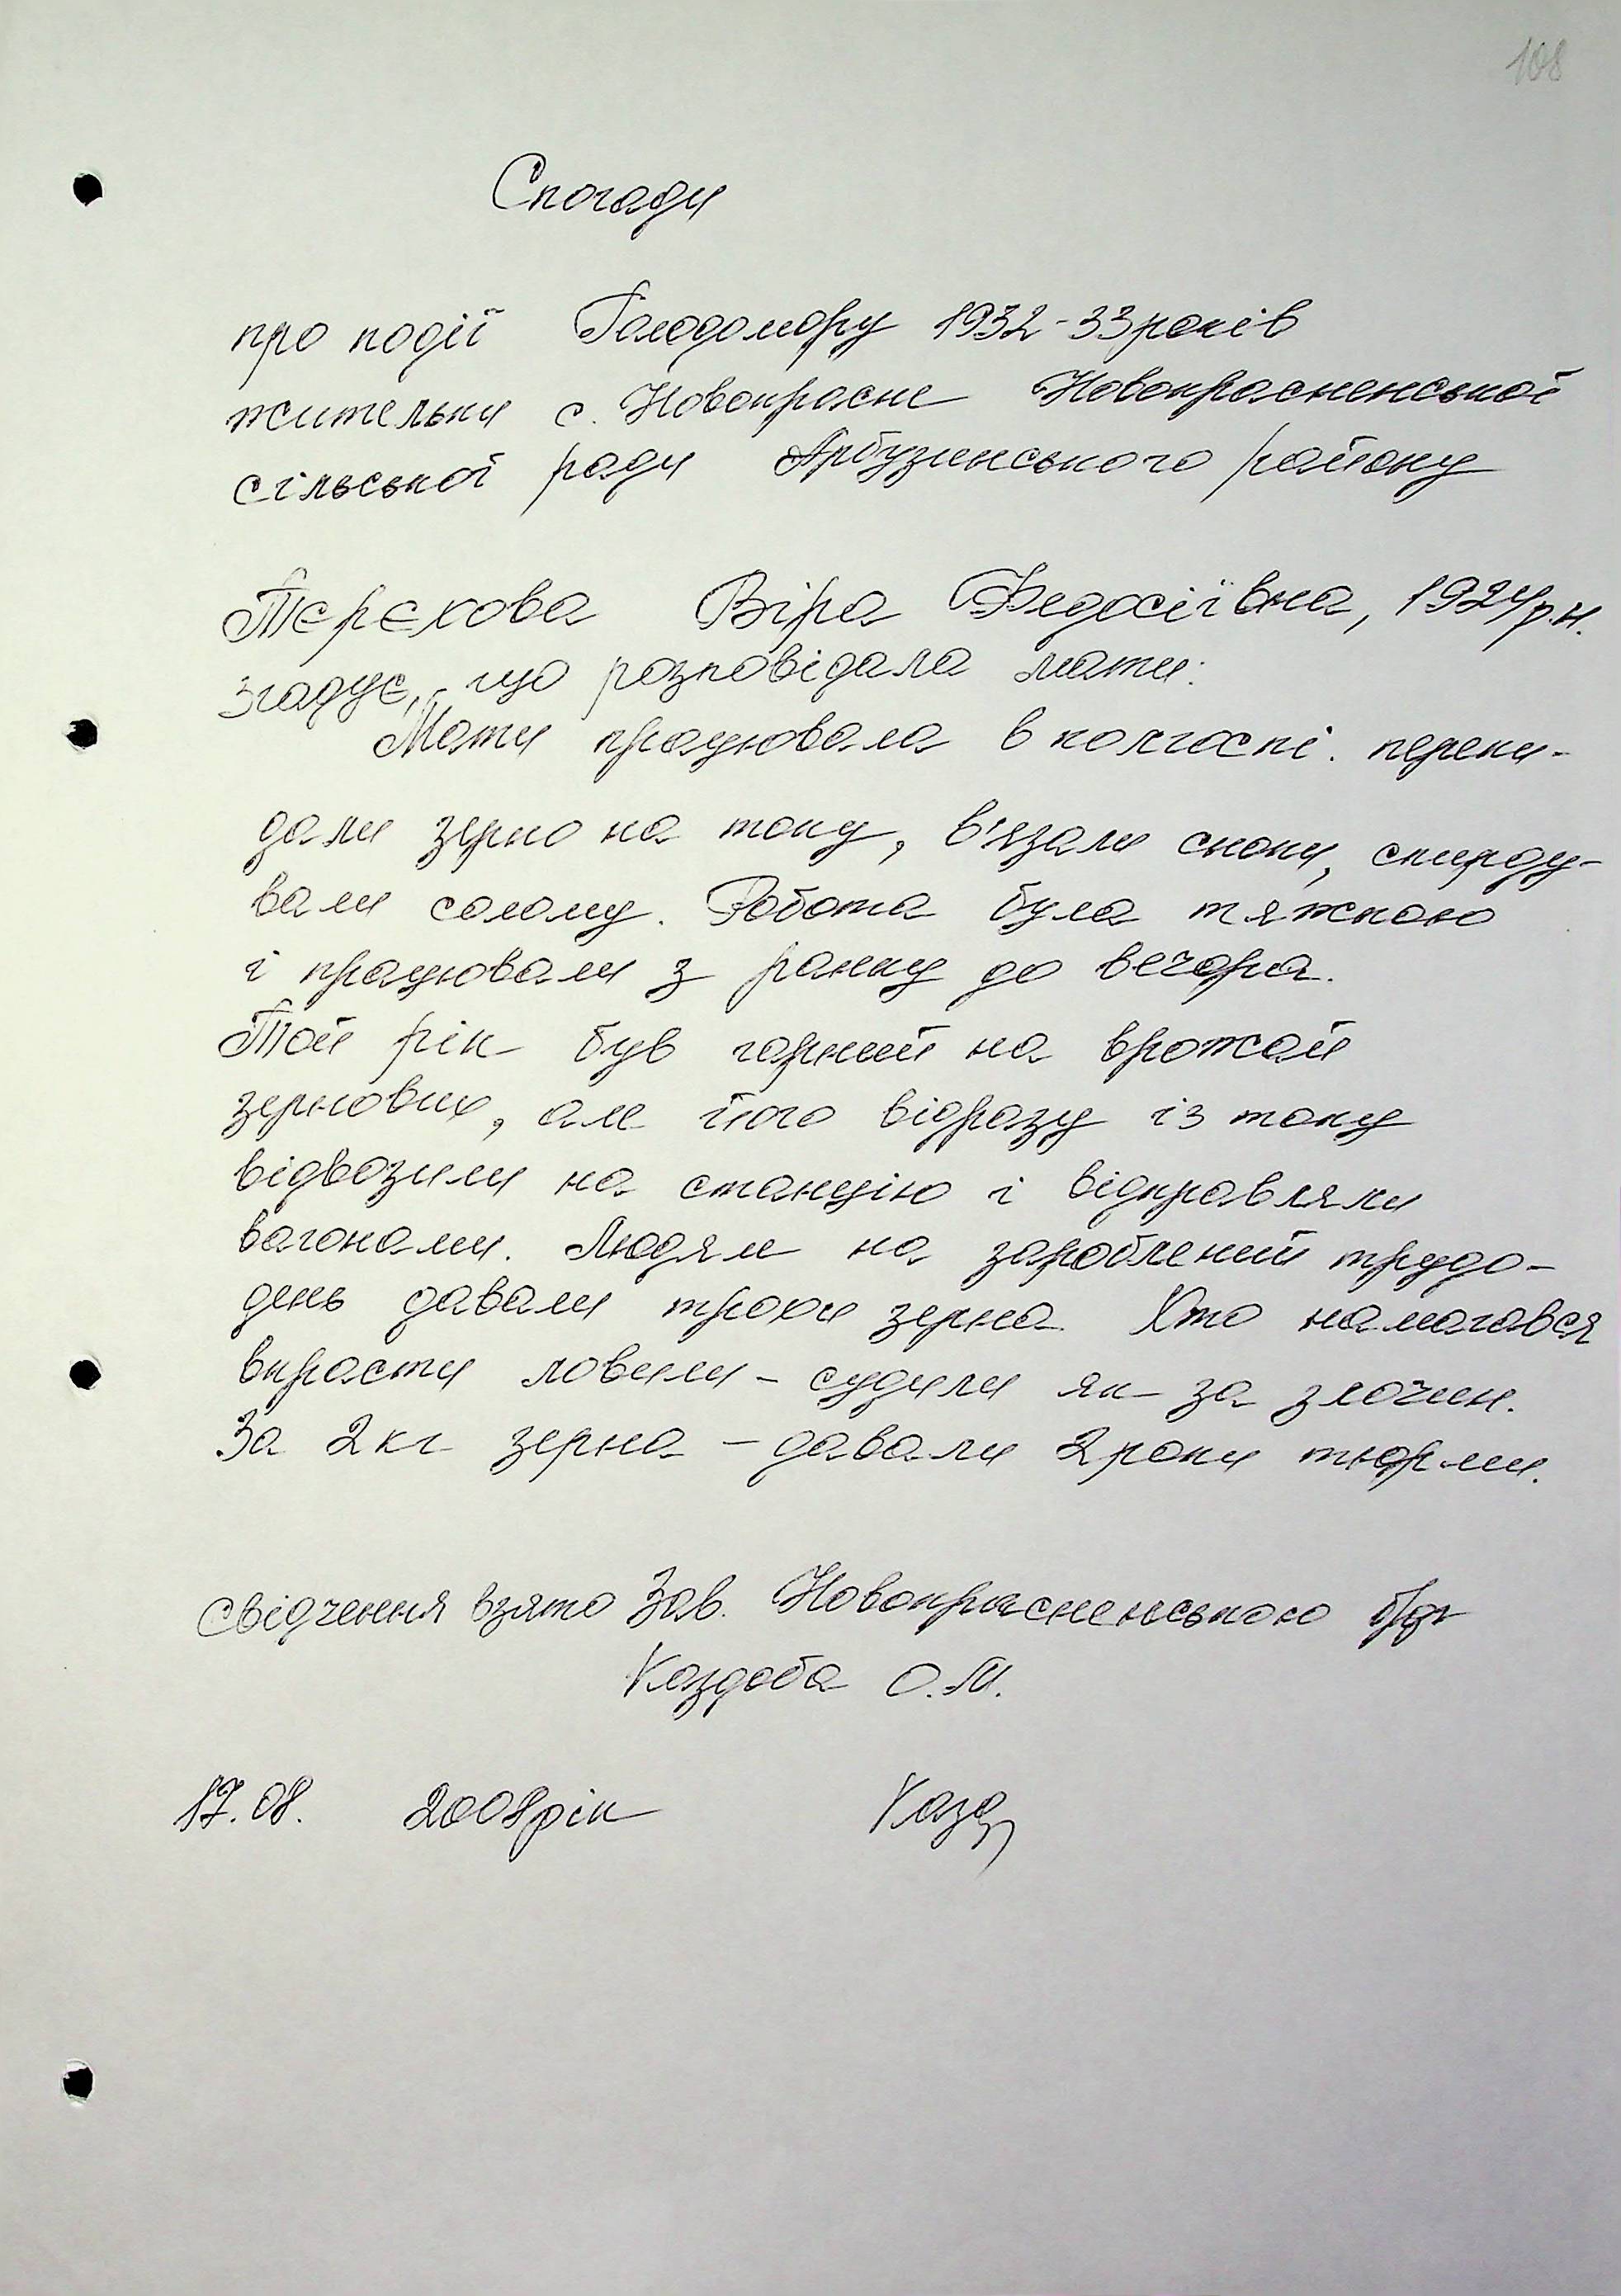 108
Спогади
про події Голодомору 1932-33 років
жительки с. Новокрасне Новокрасненської
сільської ради Арбузинського району
Тєрєхова Віра Федосіївна, 1924 р.н.
згадує, що розповідала мати:
Мати працювала в колгоспі. переки-
дали зерно на току, в'язали снопи, скирду-
вали солому. Робота була тяжкою
і працювали з ранку до вечора.
Той рік був гарний на врожай
зернових, але його відразу із току
відвозили на станцію і відправляли
вагонами. Людям на зароблений трудо-
день давали трохи зерна. Хто намагався
вкрасти ловили - судили як за злочин.
За 2 кг зерна - давали 2 роки тюрми.
Свідчення взято Зав. Новокрасненською
Каздоба О.М.
17.08. 2008 рік